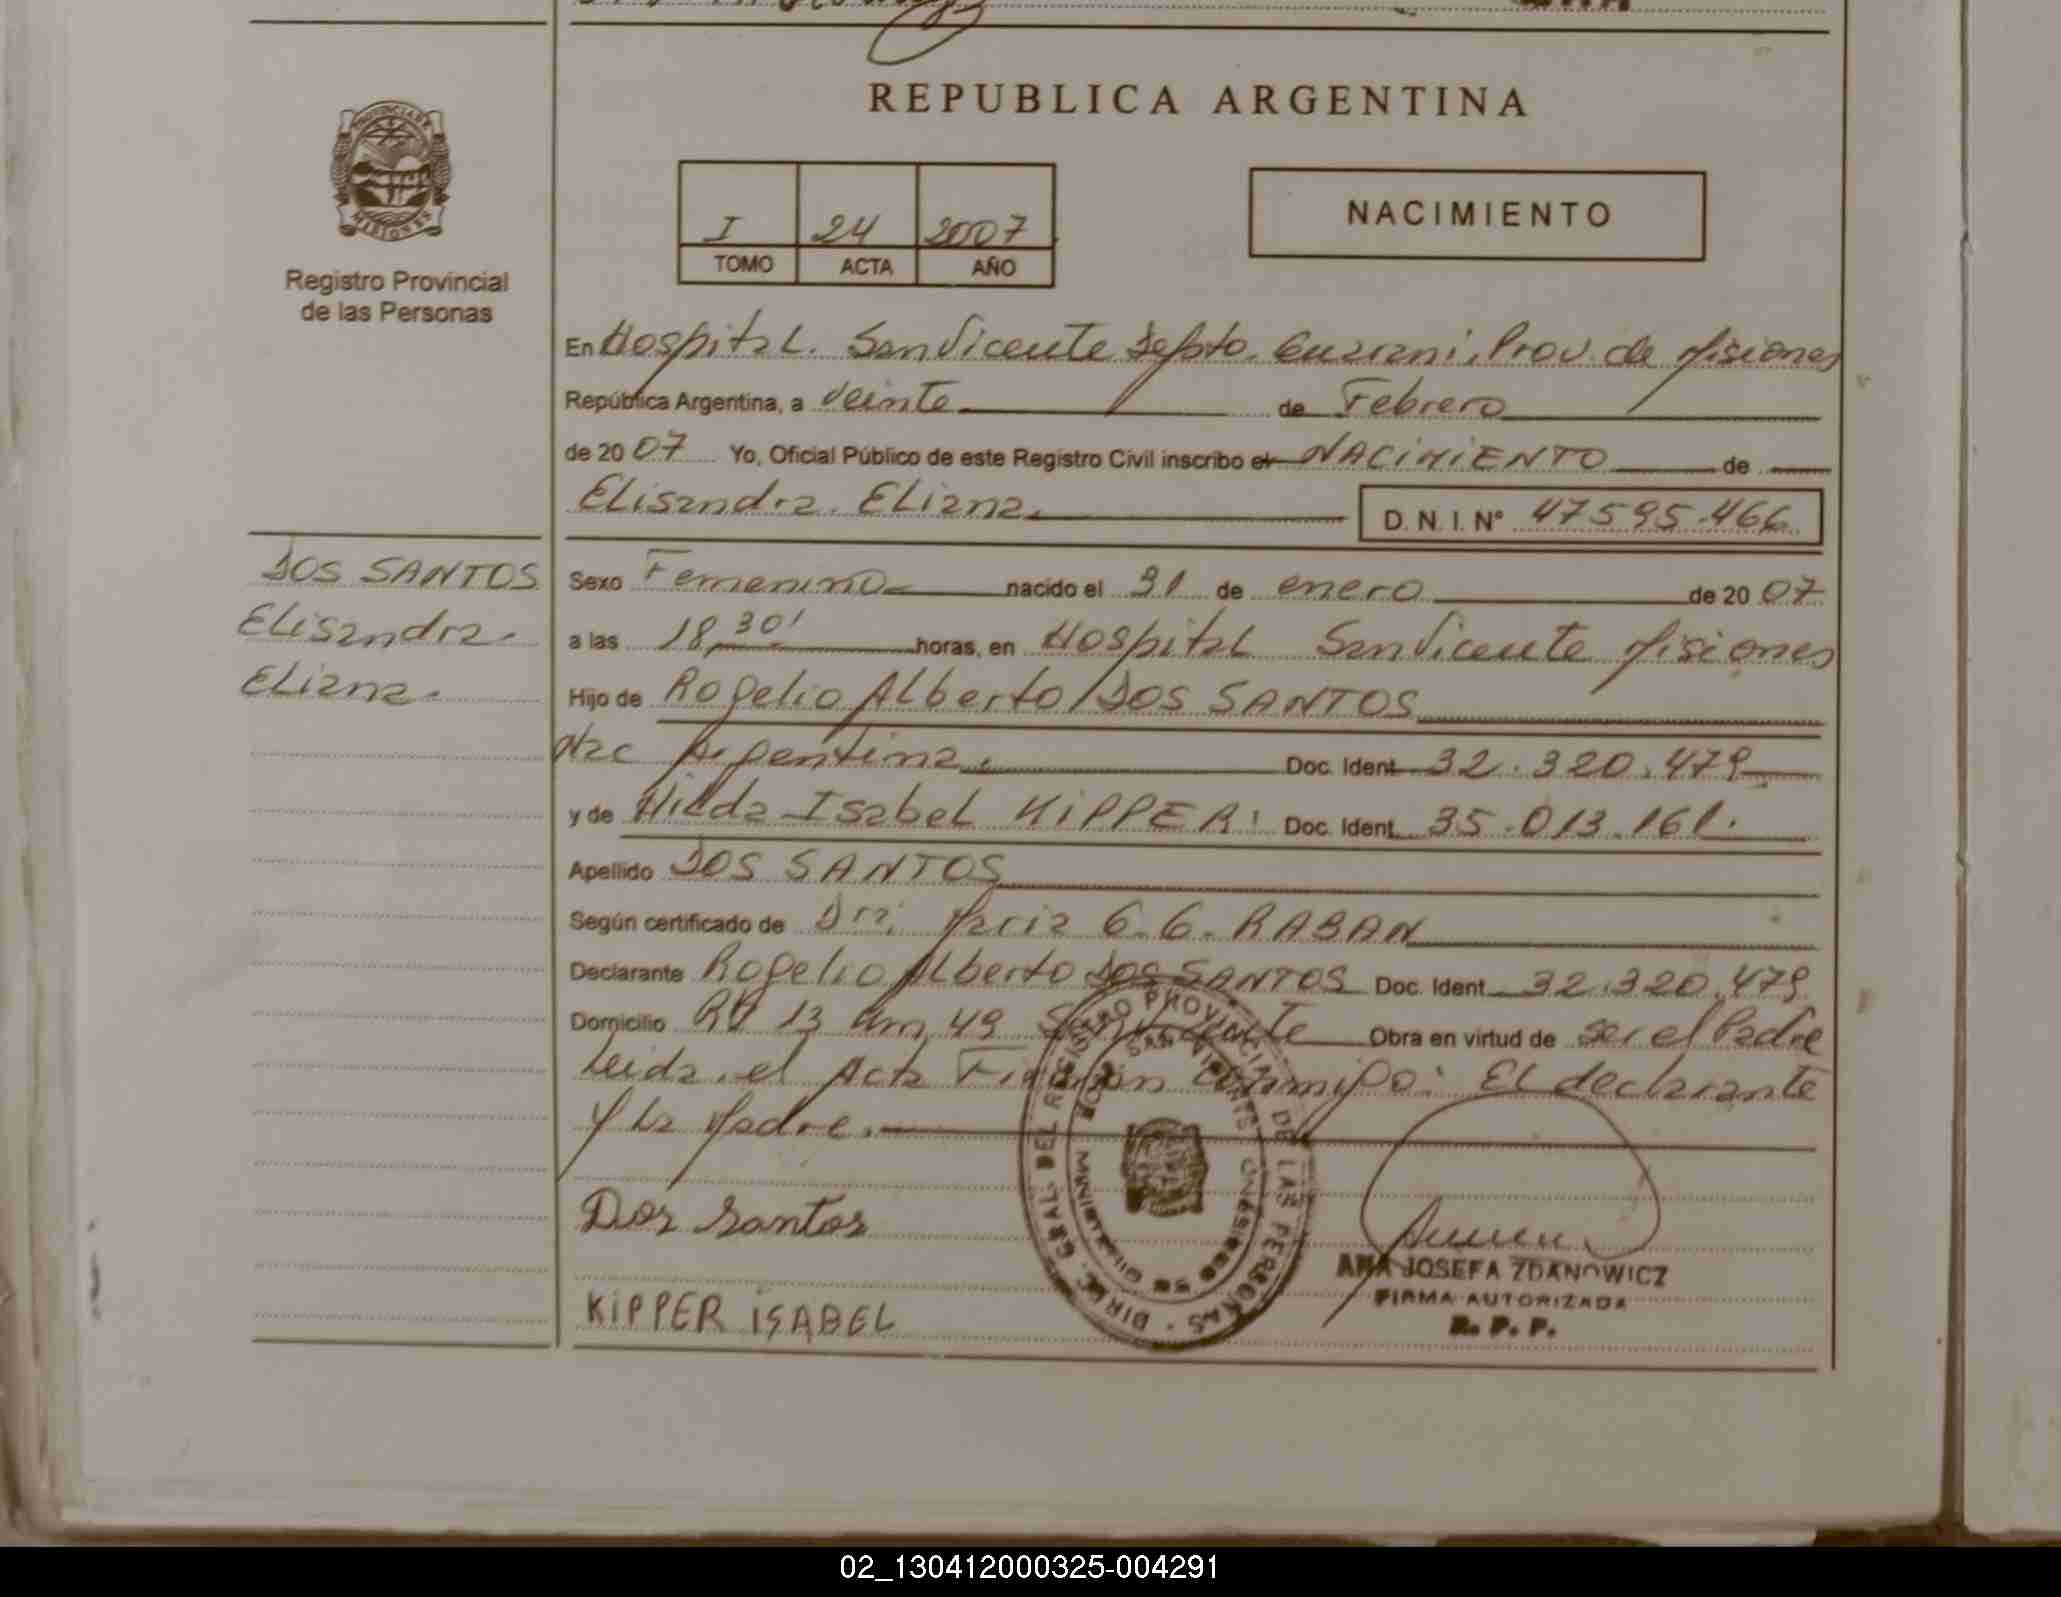 REPUBLICA ARGENTINA
PROVINCIA DE
MISIONES
Registro Provincial
de las Personas
I 24 2007
TOMO ACTA AÑO
NACIMIENTO
En Hospital. San Vicente Depto. Guarani, Prov. de Misiones
República Argentina, a Veinte de Febrero
de 2007 Yo, Oficial Público de este Registro Civil inscribo el NACIMIENTO de
Elisandra. Eliana. D. N. I. Nº 47595.466
DOS SANTOS
Elisandra.
Eliana.
Sexo Femenino nacido el 31 de enero de 2007
a las 18,30' horas, en Hospital San Vicente Misiones
Hijo de Rogelio Alberto DOS SANTOS
Nac Argentina. Doc. Ident 32.320.479
y de Hilda Isabel KIPPER Doc. Ident. 35.013.161.
Apellido DOS SANTOS
Según certificado de Dra. Maria G. G. RABAN
Declarante Rogelio Alberto DOS SANTOS Doc. Ident 32.320.479
Domicilio RP 13 km, 49 San Vicente Obra en virtud de ser el Padre
Leida, el Acta Firman Conmigo: El declarante
y la Madre.
Dos Santos
KIPPER ISABEL
DIREC. GRAL. DEL REGISTRO PROVINCIAL DE LAS PERSONAS
SAN VICENTE
ANA JOSEFA ZDANOWICZ
FIRMA AUTORIZADA
R. P. P.
02_130412000325-004291